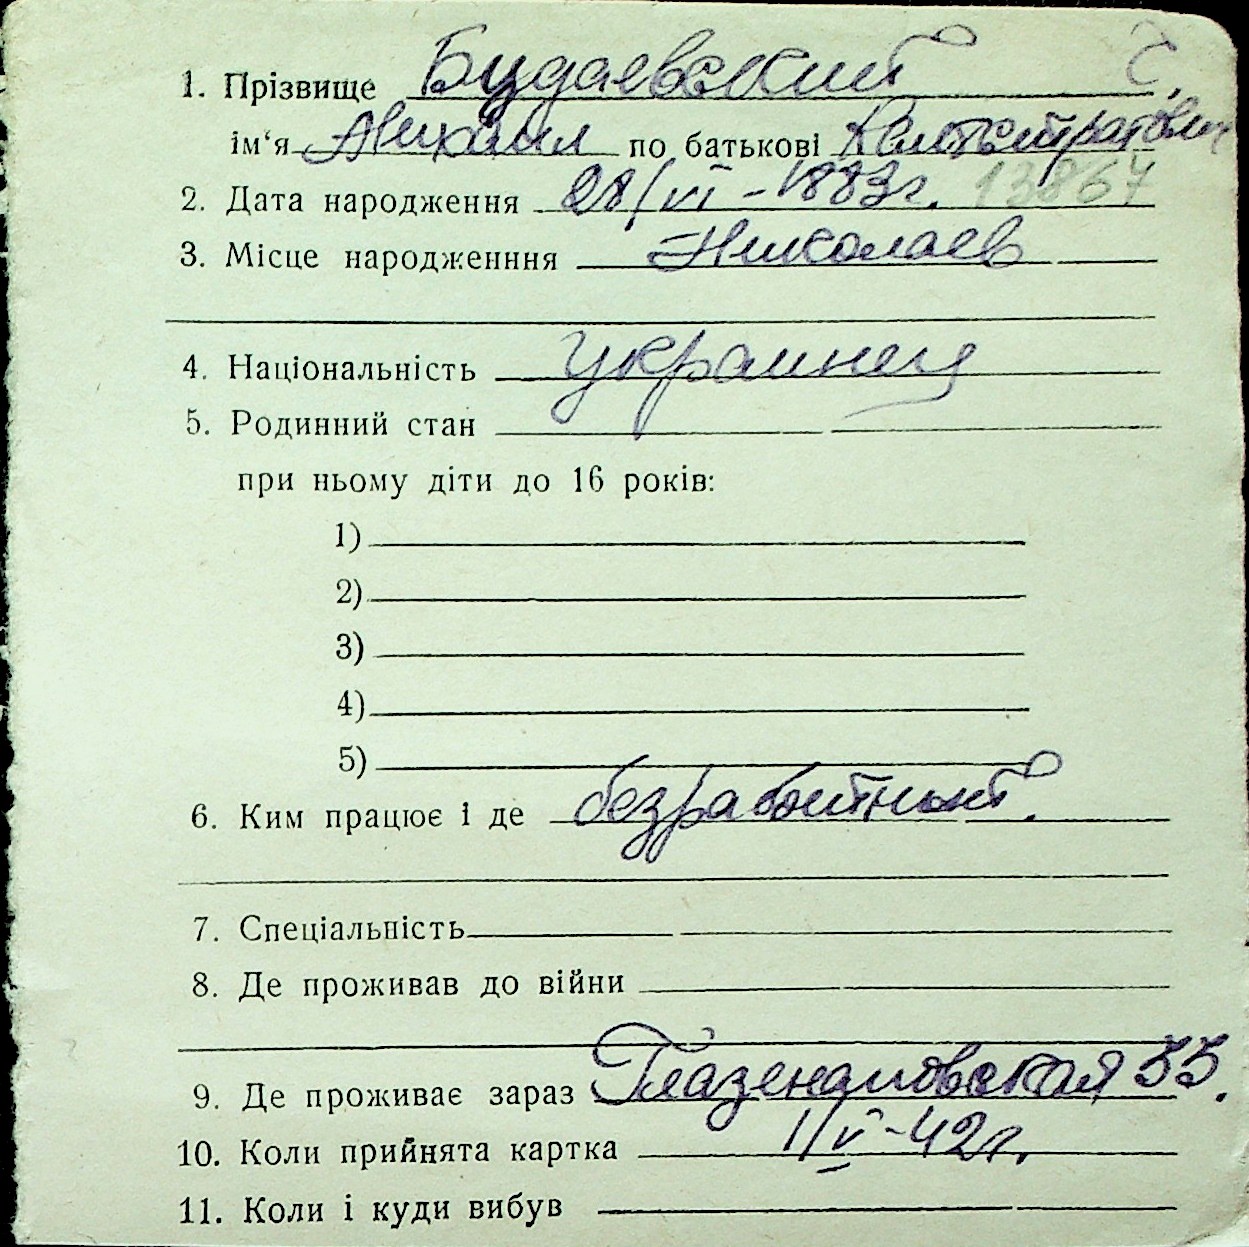 1. Прізвище Будаевский С.
ім'я Михаил по батькові
2. Дата народження 28/VI - 1883г. 13867
3. Місце народженння Николаев
4. Національність украинец
5. Родинний стан
при ньому діти до 16 років:
1)
2)
3)
4)
5)
6. Ким працює і де безработный.
7. Спеціальність
8. Де проживав до війни
9. Де проживає зараз Глазенаповская 55.
10. Коли прийнята картка 1/V-42г.
11. Коли і куди вибув